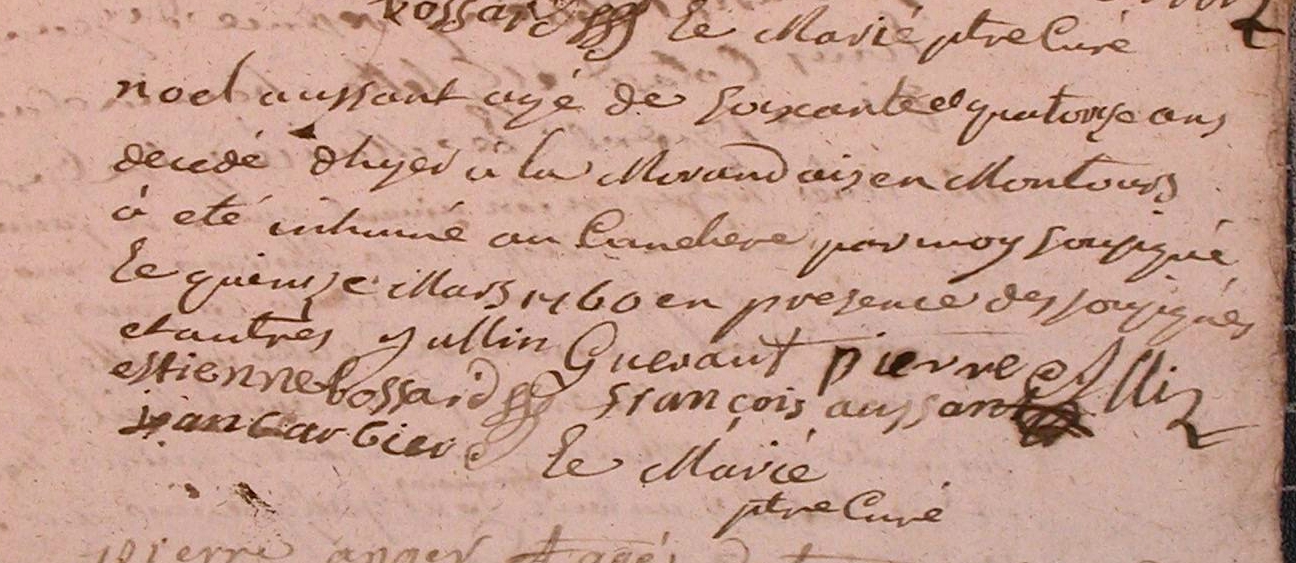 bossard Le Marié ptre Curé
noel aussant agé de soixante et quatorze ans
decedé d'hyer à la Morandais en Montours
à eté inhumé au Cimetiere par moy soussigné
Le quinze Mars 1760 en presence des soussignés
et autres jullin Guerault pierre
estienne bossard francois aussant
jean barbier Le Marié
ptre Curé
pierre anger agé de